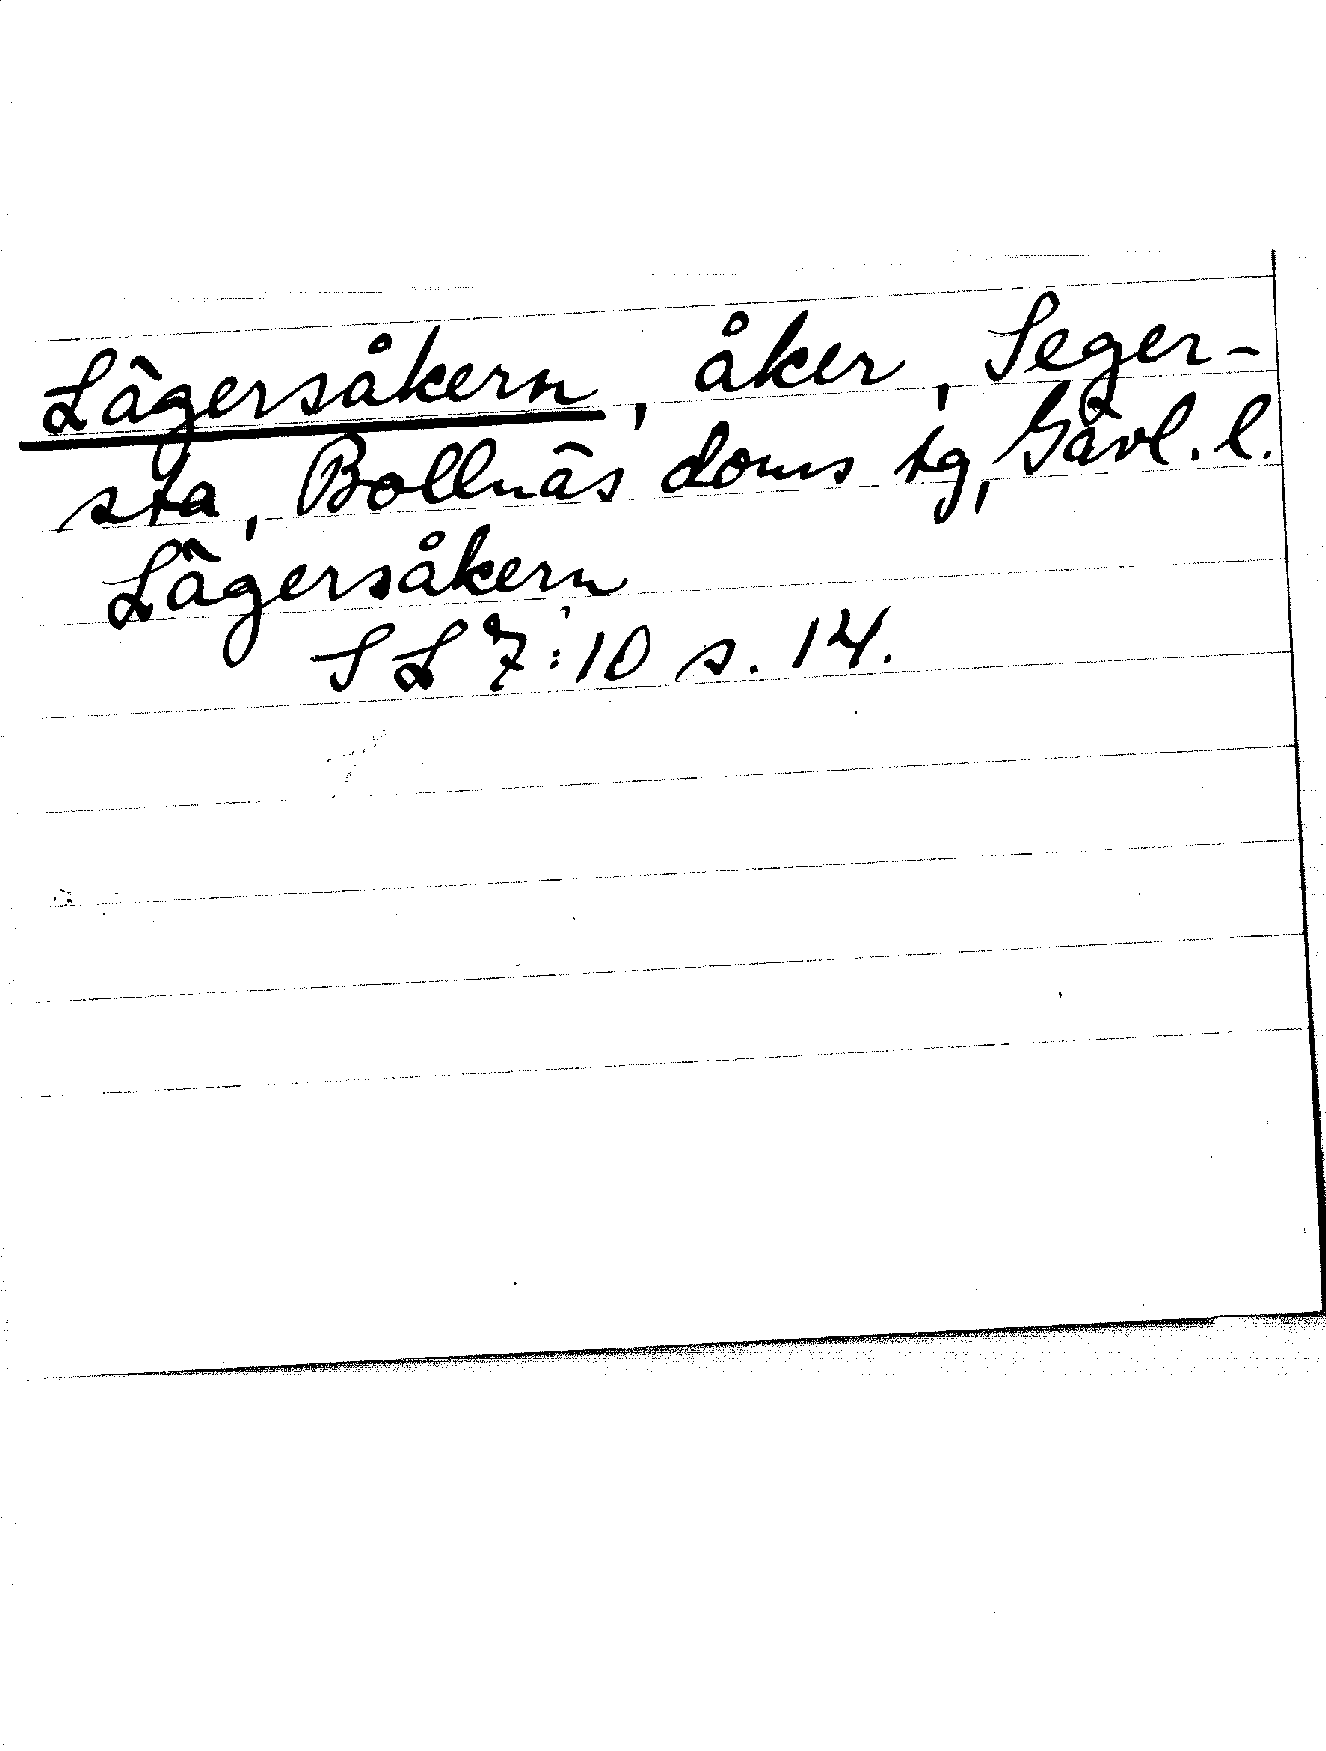 Lägersåkern, åker, Seger-
sta, Bollnäs doms tg, Gävl. l.
Lägersåkern
SL 7:10 s. 14.